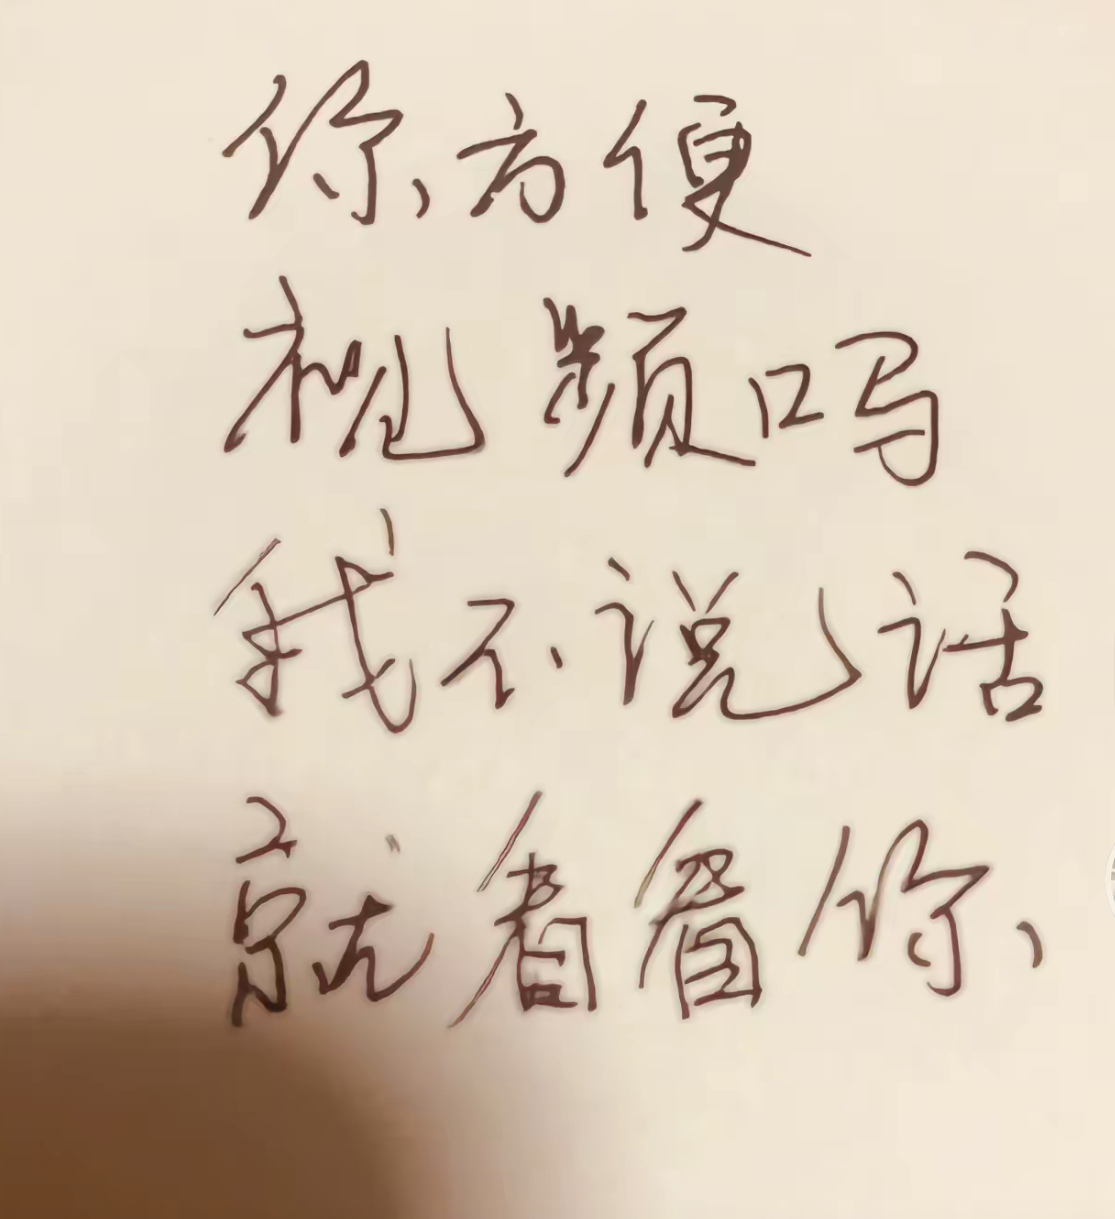 你方便
视频吗
我不说话
就看看你